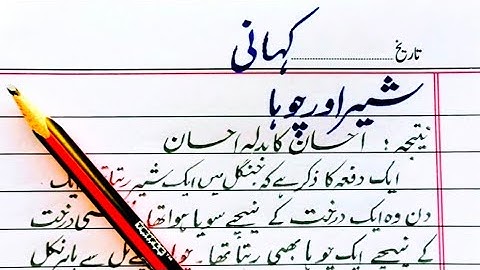 تاریخ
کہانی
شیر اور چوہا
نتیجہ : احسان کا بدلہ احسان
ایک دفعہ کا ذکر ہے کہ جنگل میں ایک شیر رہتا ایک
دن وہ ایک درخت کے نیچے سویا ہوا تھا درخت
کے نیچے ایک چوہا بھی رہتا تھا ۔ بل سے باہر نکل